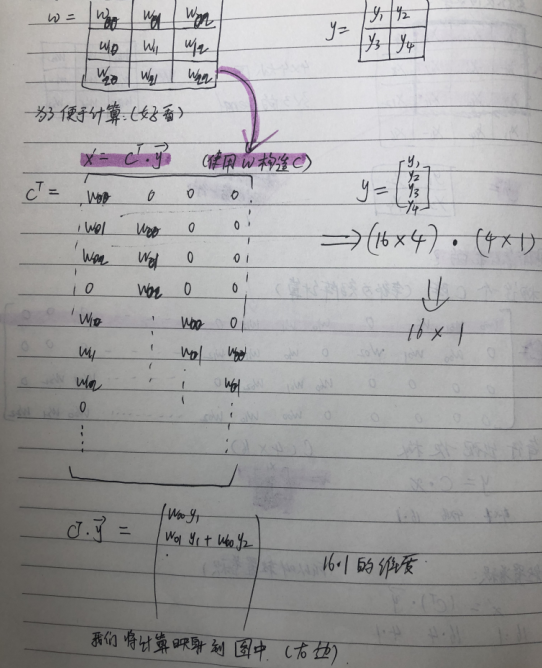 w = w00 w01 w02
w10 w11 w12
w20 w21 w22
y = y1 y2
y3 y4
为了便于计算:(好看)
x = C^T · y⃗ (使用 w 构造 C)
C^T =
w00 0 0 0
w01 w00 0 0
w02 w01 0 0
0 w02 0 0
w10 w00 0
w11 w01 w00
w12 w01
0
y = [y1 y2 y3 y4]
⟹ (16 × 4) · (4 × 1)
⇓
16 × 1
C^T · y⃗ =
w00 y1
w01 y1 + w00 y2
16·1 的维度
我们将计算映射到图中 (右边)